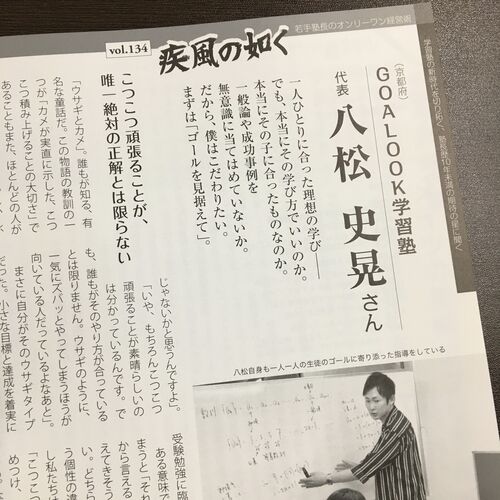 若手塾長のオンリーワン経営術
vol.134
疾風の如く
学習塾の新時代を切り拓く、教室歴10年未満の期待の星に聞く
（京都府）
GOALOOK学習塾
代表 八松 史晃さん
一人ひとりに合った理想の学び――
でも、本当にその学び方でいいのか。
本当にその子に合ったものなのか。
一般論や成功事例を
無意識に当てはめていないか。
だから、僕はこだわりたい。
まずは「ゴールを見据えて」。
こつこつ頑張ることが、
唯一絶対の正解とは限らない
「ウサギとカメ」。誰もが知る、有
名な童話だ。この物語の教訓の一
つが「カメが実直に示した、こつ
こつ積み上げることの大切さ」で
あることもまた、ほとんどの人が
じゃないかと思うんですよ」。
「いや、もちろんこつこつ
頑張ることが素晴らしいの
は分かっているんです。で
も、誰もがそのやり方が合っている
とは限りません。ウサギのように、
一気にズバッとやってしまうほうが
向いている人だっているよなあと。
まさに自分がそのウサギタイプ
だった。小さな目標と達成を着実に
八松自身も一人一人の生徒のゴールに寄り添った指導をしている
受験勉強に臨
ある意味で
まうと「それ
から言える
えてきそう
い。どちら
う個性の違
し私たちは
「こつこつ
めつけ、